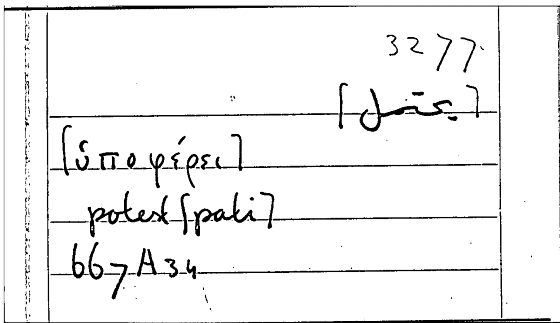 3277.
[ὑποφέρει]
potest [pati]
667A34